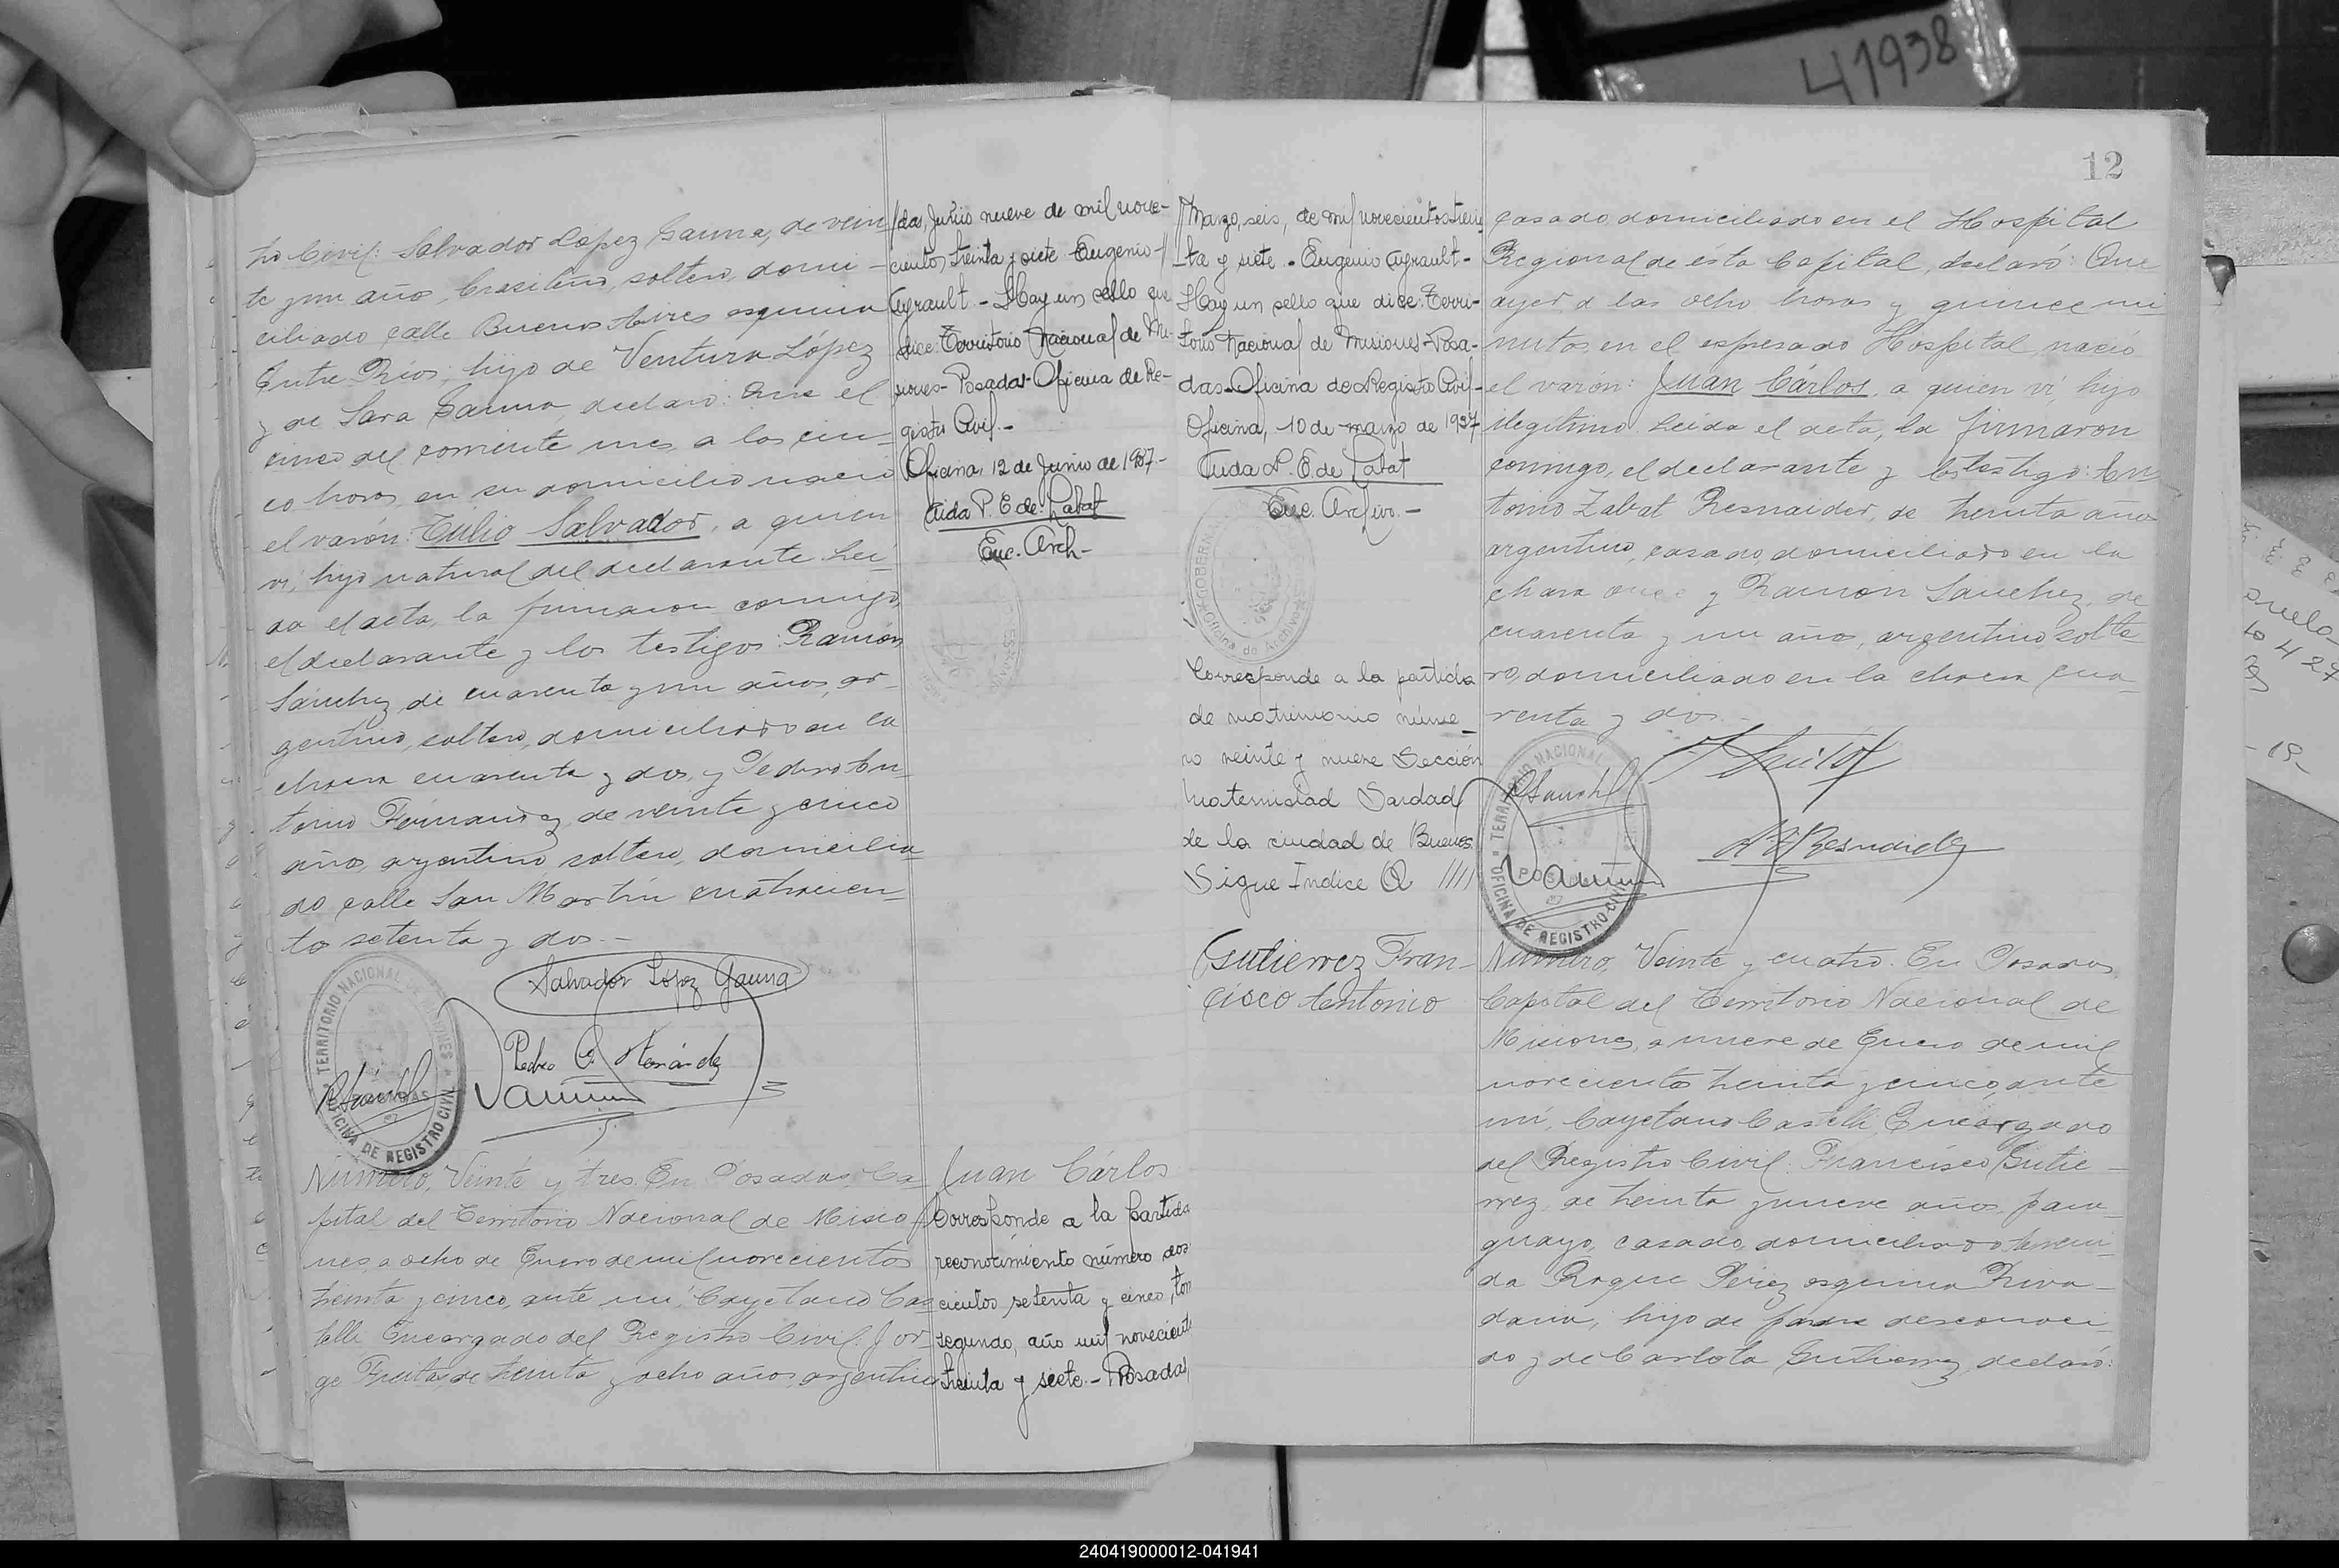 41938
tro Civil: Salvador López Gauna, de vein
te y un año, brasileño, soltero, domi-
ciliado calle Buenos Aires esquina
Entre Ríos, hijo de Ventura López
y de Sara Gauna, declaró: Que el
cinco del corriente mes, a las cin-
co horas, en su domicilio nació
el varón: Tulio Salvador, a quien
vi, hijo natural del declarante. Leí-
da el acta, la firmaron conmigo,
el declarante y los testigos: Ramón
Sánchez, de cuarenta y un años, ar-
gentino, soltero, domiciliado en la
chacra cuarenta y dos, y Pedro An-
tonio Fernández, de veinte y cinco
años, argentino, soltero, domicilia-
do calle San Martín cuatrocien-
tos setenta y dos.-
Salvador López Gauna
Pedro A. Fernández
TERRITORIO NACIONAL DE MISIONES
OFICINA DE REGISTRO CIVIL
Número, Veinte y tres. En Posadas, Ca-
pital del Territorio Nacional de Misio-
nes, a ocho de Enero de mil novecientos
treinta y cinco, ante mí, Cayetano Cas-
telli Encargado del Registro Civil: Jor-
ge Freitas, de treinta y ocho años, argentino
/das, Junio nueve de mil nove-
cientos treinta y siete Eugenio
- Hay un sello que
dice: Territorio Nacional de Mi-
siones- Posadas- Oficina de Re-
gistro Civil.-
Oficina, 12 de Junio de 1937.-
Aida P. E de Labat
Enc. Arch-
Juan Cárlos
Corresponde a la partida
reconocimiento número dos
cientos setenta y cinco, tom
segundo, año mil noveciento
treinta y siete.- Posadas
/Marzo, seis, de mil novecientos trein
-ta y siete.- Eugenio
Hay un sello que dice: Terri-
torio Nacional de Misiones- Posa-
das- Oficina de Registro Civil-
Oficina, 10 de marzo de 1937
Aida P. E. de Labat
Enc. Archivo.-
Oficina de Archivo
Corresponde a la partida
de matrimonio núme_
ro veinte y nueve Sección
Maternidad Sardad
de la ciudad de Buenos
Sigue Indice Q ////
Gutierrez Fran-
cisco Antonio
12
casado, domiciliado en el Hospital
Regional de ésta Capital, declaró: Que
ayer a las ocho horas y quince mi
nutos, en el expresado Hospital, nació
el varón: Juan Cárlos, a quien vi, hijo
ilegítimo. Leída el acta, la firmaron
conmigo, el declarante y los testigos: An
tonio Zabat Resnaider, de treinta años
argentino, casado, domiciliado en la
chacra once y Ramón Sánchez, de
cuarenta y un años, argentino, solte
ro, domiciliado en la chacra cua-
renta y dos.-
Resnaider
TERRITORIO NACIONAL
POSADAS
OFICINA DE REGISTRO CIVIL
Número, Veinte y cuatro. En Posadas,
Capital del Territorio Nacional de
Misiones, a nueve de Enero de mil
novecientos treinta y cinco, ante
mí, Cayetano Castelli, Encargado
del Registro Civil: Francisco Gutie-
rrez, de treinta y nueve años, para-
guayo, casado, domiciliado Aveni-
da Roque Pérez esquina Riva-
davia, hijo de padre desconoci-
do y de Carlota Gutierrez, declaró:
240419000012-041941